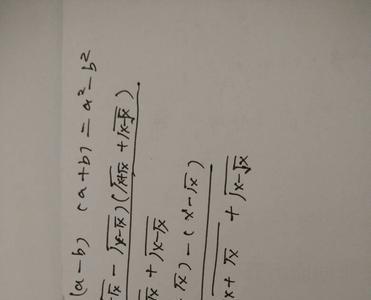 (a-b) (a+b) = a²-b²
√x - √(x-√x)) (√(x+√x) + √(x-√x))
√x + √(x-√x)
√x) - (x-√x)
x+√x + √(x-√x)